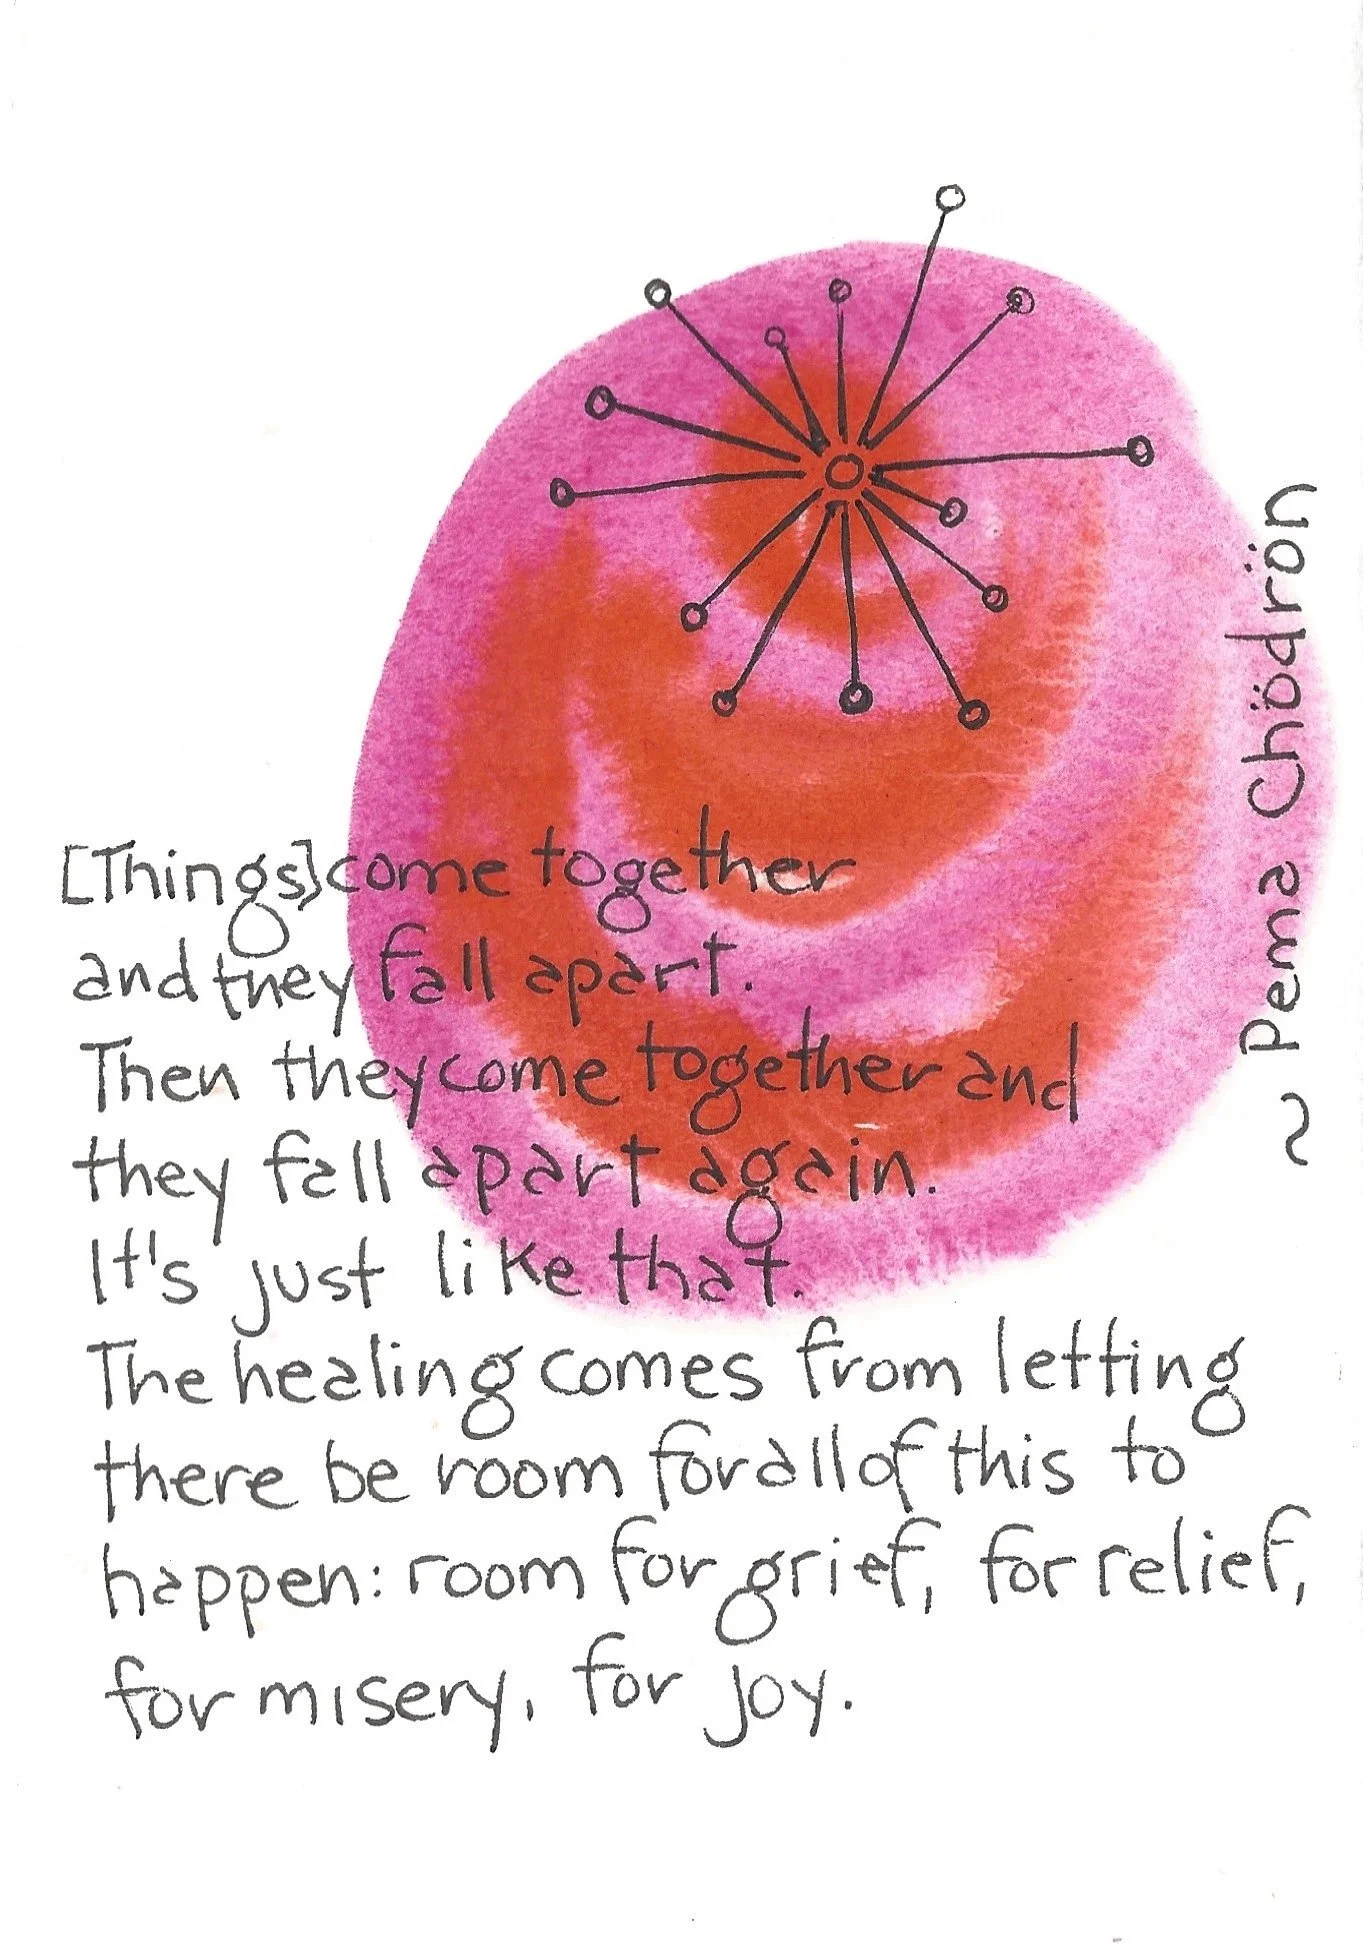 [Things] come together
and they fall apart.
Then they come together and
they fall apart again.
It's just like that.
The healing comes from letting
there be room for all of this to
happen: room for grief, for relief,
for misery, for joy.
~ Pema Chödrön